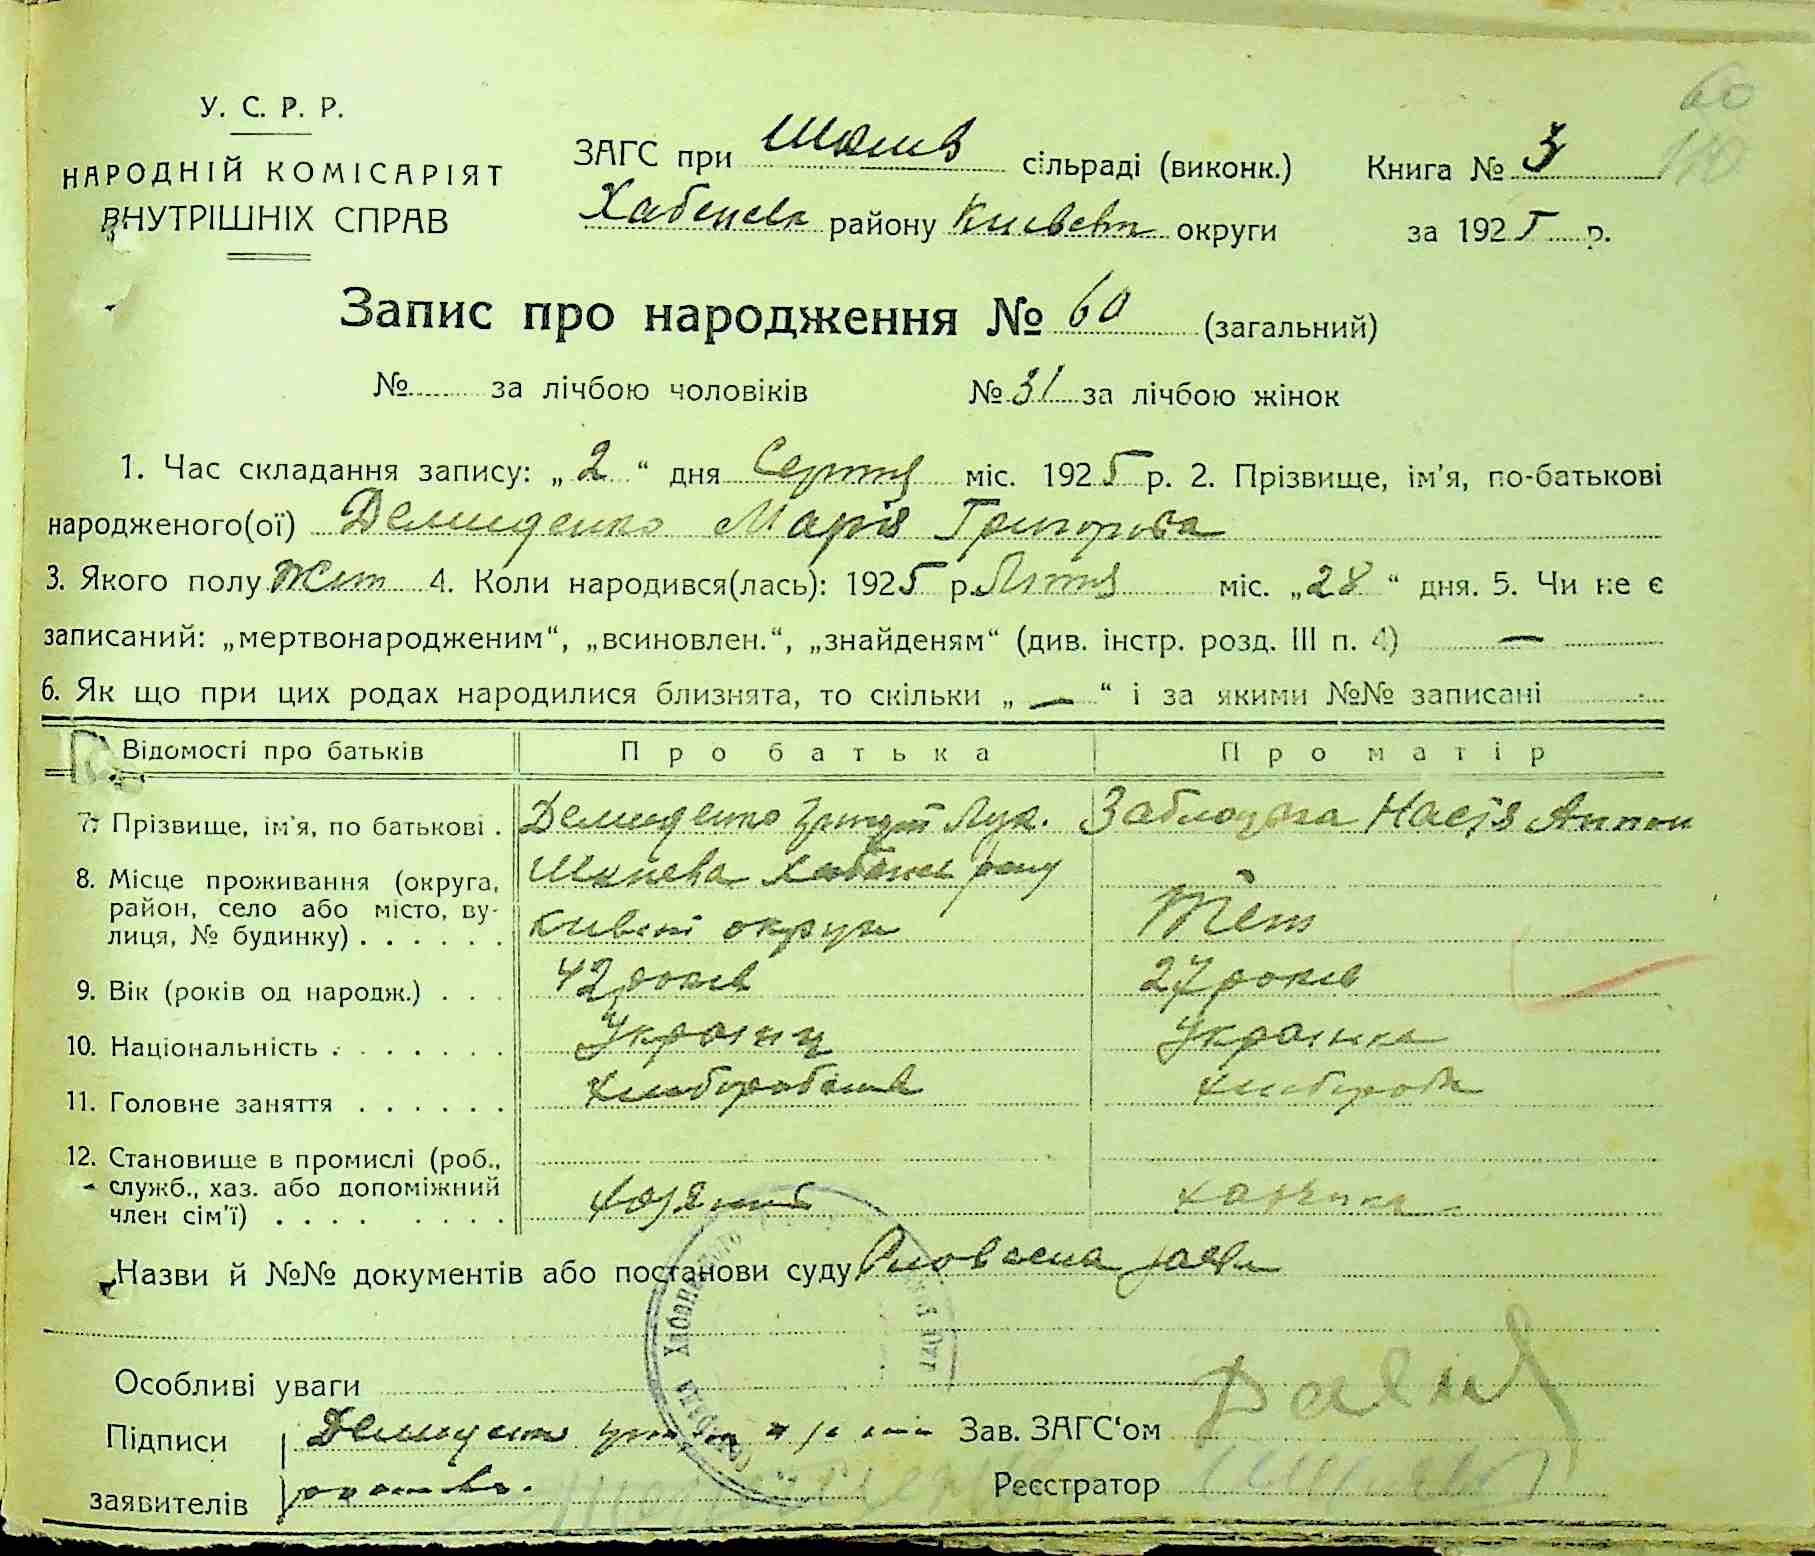 60
110
У. С. Р. Р.
НАРОДНІЙ КОМІСАРІЯТ
ВНУТРІШНІХ СПРАВ
ЗАГС при Шкнев сільраді (виконк.) Книга № 3
Хабенськ району Київськ округи за 1925 р.
Запис про народження № 60 (загальний)
№ за лічбою чоловіків № 31 за лічбою жінок
1. Час складання запису: „2“ дня Серпня міс. 1925 р. 2. Прізвище, ім'я, по-батькові
народженого(ої) Демиденко Марія Григоровна
3. Якого полу Жіноч 4. Коли народився(лась): 1925 р. Липня міс. „28“ дня. 5. Чи не є
записаний: „мертвонародженим“, „всиновлен.“, „знайденям“ (див. інстр. розд. III п. 4) —
6. Як що при цих родах народилися близнята, то скільки „—“ і за якими №№ записані
Відомості про батьків Про батька Про матір
7. Прізвище, ім'я, по батькові . Демиденко Григорій Лук. Заблоцька Настя Антон
8. Місце проживання (округа, район, село або місто, вулиця, № будинку) . . . . . .
Хабенськ рану
Київськ округи
9. Вік (років од народж.) . . . 42 років 27 років
10. Національність . . . . . . . Українц Українка
11. Головне заняття . . . . . . Хліборобств Хлібороб
12. Становище в промислі (роб.,
служб., хаз. або допоміжний
член сім'ї) . . . . . . . . хазяїн хазяйка
Назви й №№ документів або постанови суду Словесна заява
Особливі уваги
Підписи Демиденко Зав. ЗАГС'ом
заявителів Реєстратор